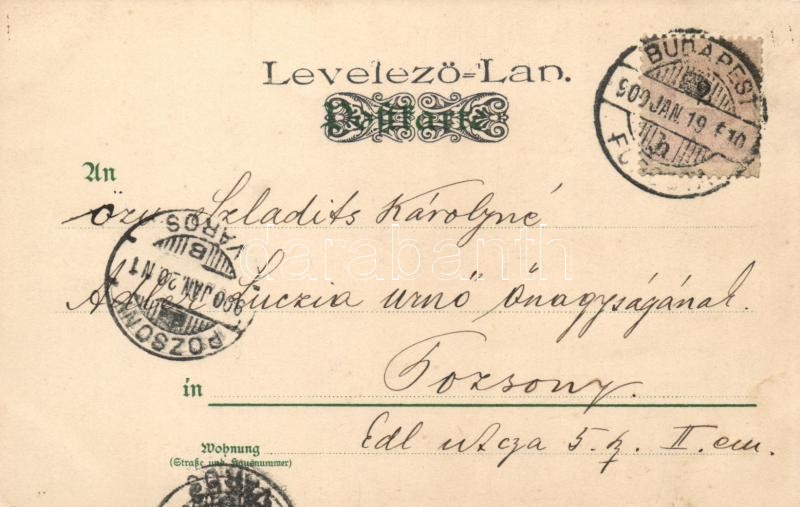 Levelező=Lap.
Postkarte
BUDAPEST
900 JAN. 19
An
özv Szladits Károlyné
VÁROS
B
900 JAN. 20 N 1
POZSONY
Luczia urnő őnagyságának.
in
Pozsony.
Wohnung
(Straße und Hausnummer)
Edl utcza 5. sz. II. em.
darabanth